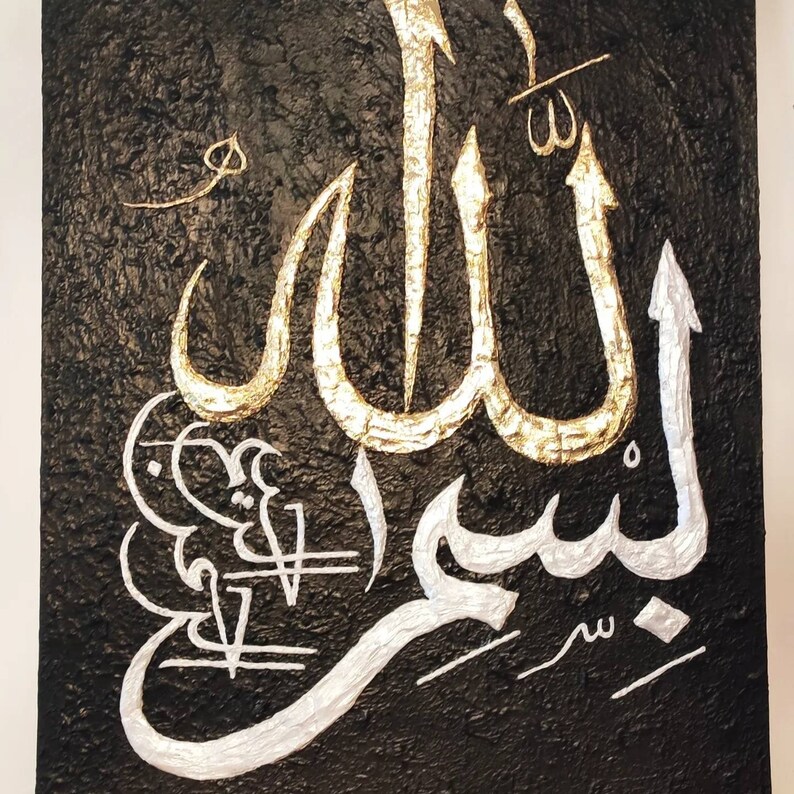 بِسْمِ
اللّٰهُ
الرحمن
الرحيم